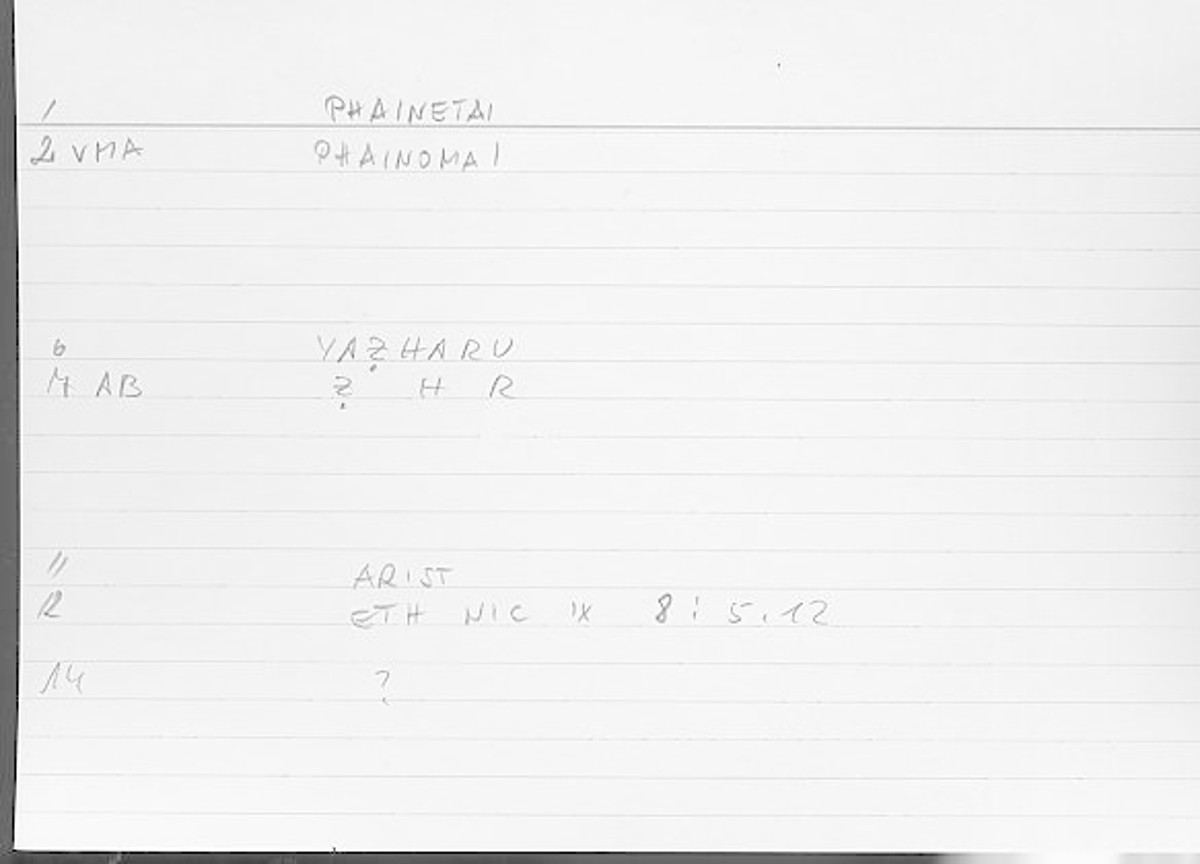 1 PHAINETAI
2 VMA PHAINOMAI
6 YAẒHARU
M AB Ẓ H R
11 ARIST
R ETH NIC IX 8 : 5.12
14 ?